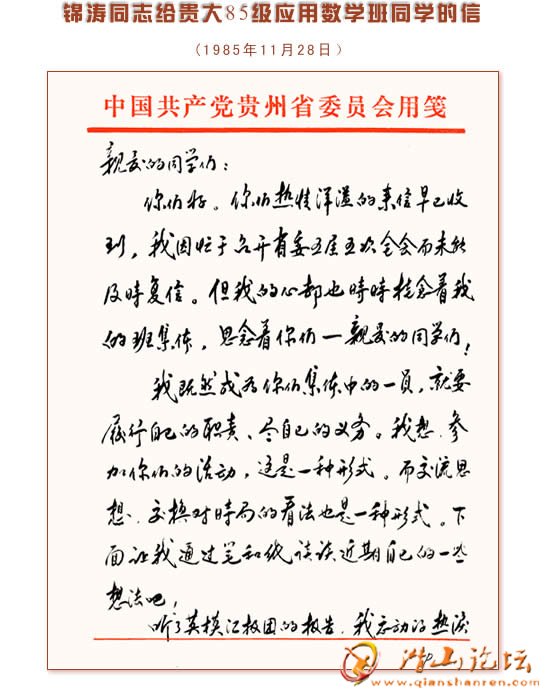 锦涛同志给贵大85级应用数学班同学的信
（1985年11月28日）
中国共产党贵州省委员会用笺
亲爱的同学们：
你们好。你们热情洋溢的来信早已收
到，我因忙于召开省委五届五次全会而未能
及时复信。但我的心却也时时挂念着我
的班集体，思念着你们—亲爱的同学们！
我既然成为你们集体中的一员，就要
履行自己的职责、尽自己的义务。我想，参
加你们的活动，这是一种形式。而交流思
想、交换对时局的看法也是一种形式。下
面让我通过笔和纸谈谈近期自己的一些
想法吧！
听了英模汇报团的报告，我感动得热泪
潜山论坛
www.qianshanren.com